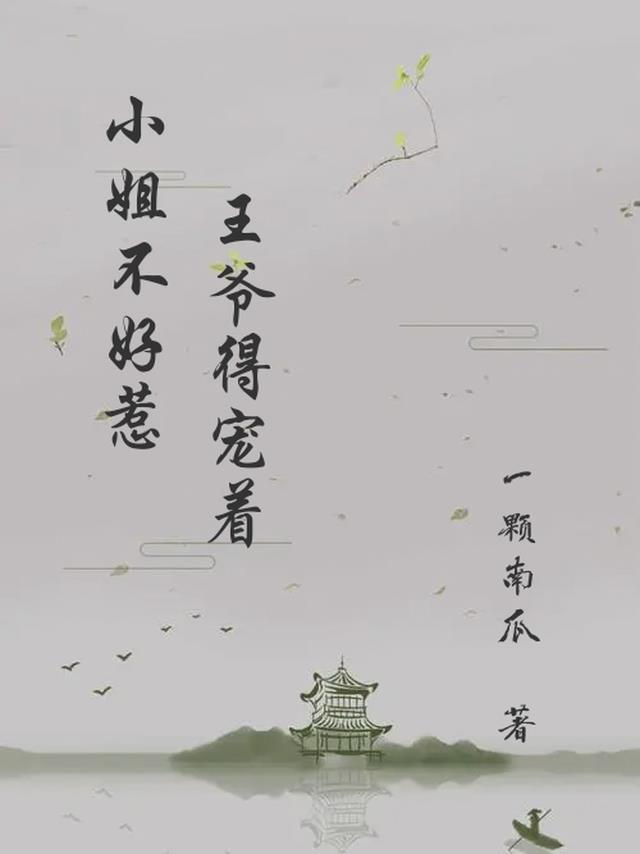 小姐不好惹
王爷得宠着
一颗南瓜 著